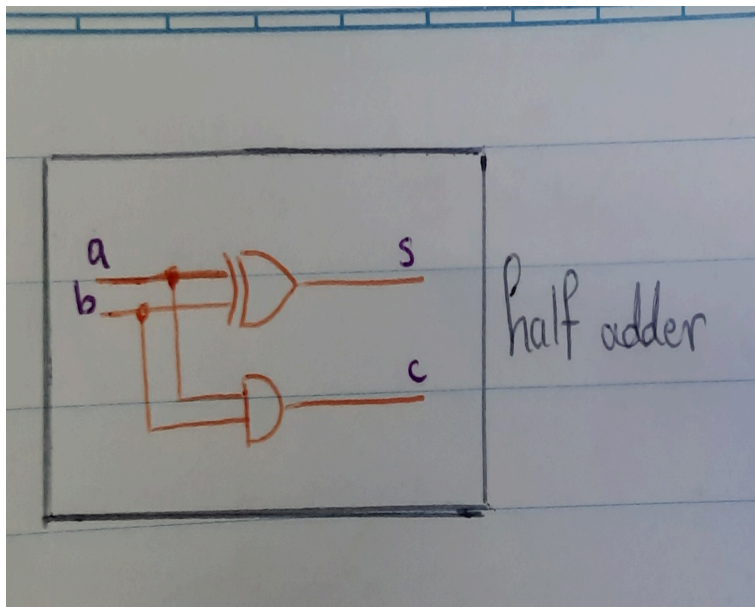 a
b
s
c
half adder